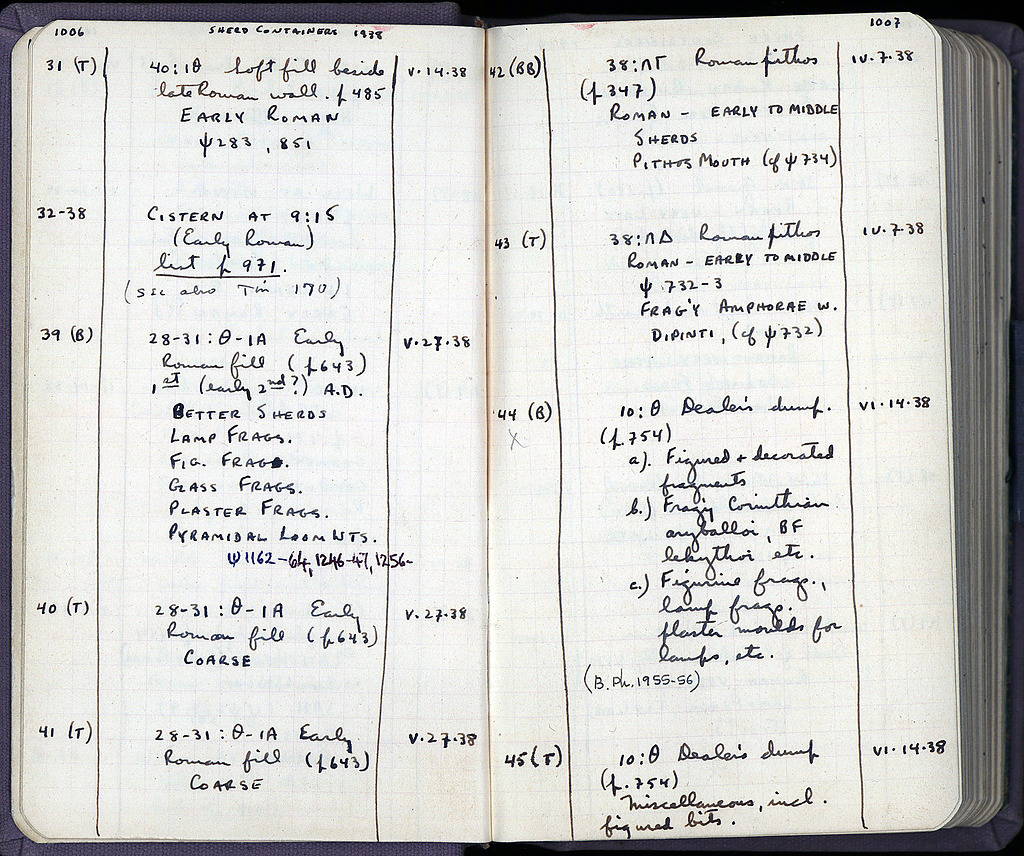 1006 SHERD CONTAINERS 1938
31 (T) 40:1Θ Soft fill beside V.14.38
late Roman wall. p 485
EARLY ROMAN
ψ 283, 851
32-38 CISTERN AT 9:15
(Early Roman)
list p 971.
(see also Tin 170)
39 (B) 28-31:Θ-1A Early V.27.38
Roman fill (p 643)
1st (early 2nd?) A.D.
BETTER SHERDS
LAMP FRAGS.
FIG. FRAGS.
GLASS FRAGS.
PLASTER FRAGS.
PYRAMIDAL LOOM WTS.
ψ 1162-64, 1246-47, 1256-
40 (T) 28-31:Θ-1A Early V.27.38
Roman fill (p 643)
COARSE
41 (T) 28-31:Θ-1A Early V.27.38
Roman fill (p 643)
COARSE
1007
42 (BB) 38:ΛΓ Roman pithos IV.7.38
(p 347)
ROMAN - EARLY TO MIDDLE
SHERDS
PITHOS MOUTH (cf ψ 734)
43 (T) 38:ΛΔ Roman pithos IV.7.38
ROMAN - EARLY TO MIDDLE
ψ 732-3
FRAG'Y AMPHORAE W.
DIPINTI, (cf ψ 732)
44 (B) 10:Θ Dealer's dump. VI.14.38
X (p. 754)
a). Figured + decorated
fragments
b.) Frag'y Corinthian
aryballoi, BF
lekythoi, etc.
c.) Figurine frags.,
lamp frags.
plaster moulds for
lamps, etc.
(B. Ph. 1955-56)
45 (T) 10:Θ Dealer's dump VI.14.38
(p. 754)
Miscellaneous, incl.
figured bits.